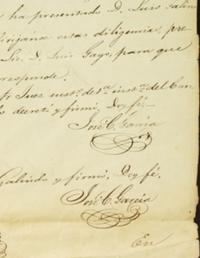 ha presentado D. Luis Galin
dirijana estas diligencias, pre
Sr. D. Luis Gago, para que
responde.
Sr Juez inst.º de 1ª inst.ª del Can
decretó y firmó, Doy fé.
José C. García
Galindo y firmó, Doy fé.
José C. García
En